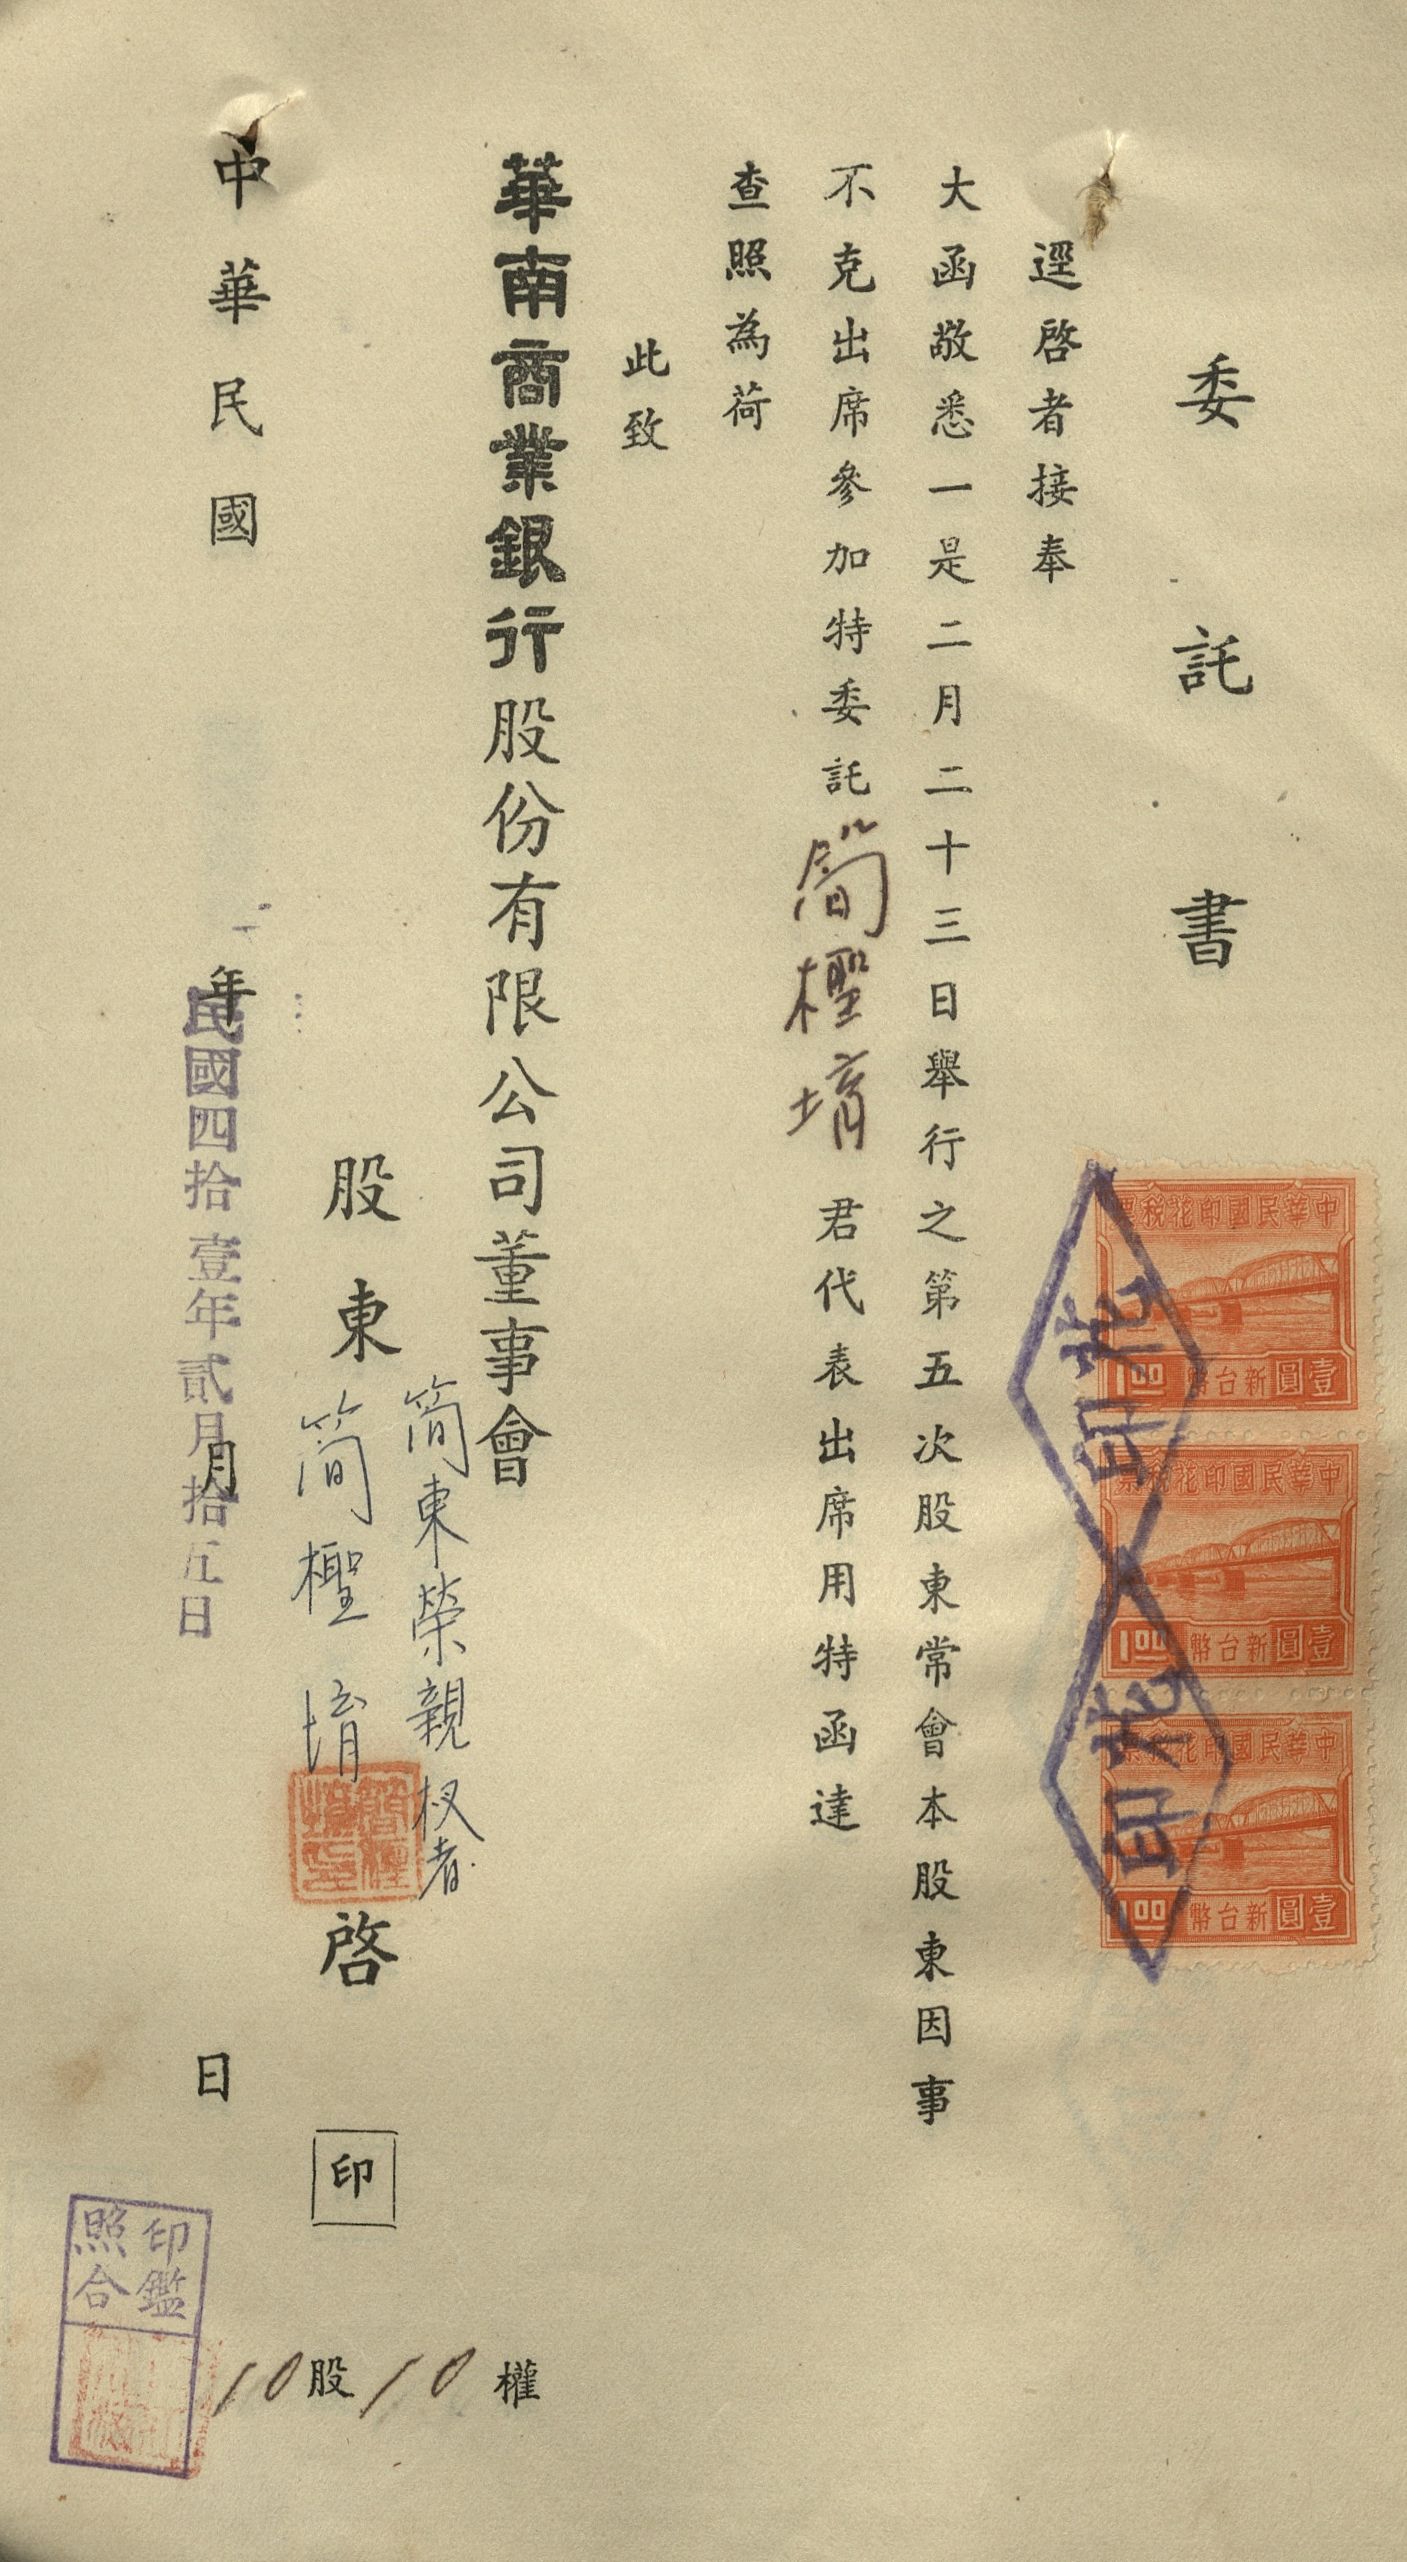 委託書
逕啓者接奉
大函敬悉一是二月二十三日舉行之第五次股東常會本股東因事
不克出席參加特委託簡檉堉君代表出席用特函達
查照為荷
此致
華南商業銀行股份有限公司董事會
簡東榮親权者
股東簡檉堉啓
印
中華民國年月日
民國四拾壹年貳月拾五日
10股10權
印鑑
照合
中華民國印花稅票
壹圓新台幣
1.00
中華民國印花稅票
壹圓新台幣
1.00
中華民國印花稅票
壹圓新台幣
1.00
印花
印花